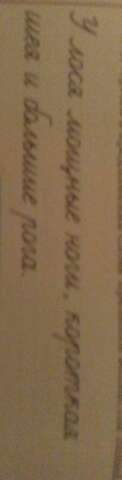 У лося мощные ноги, короткая
шея и большие рога.